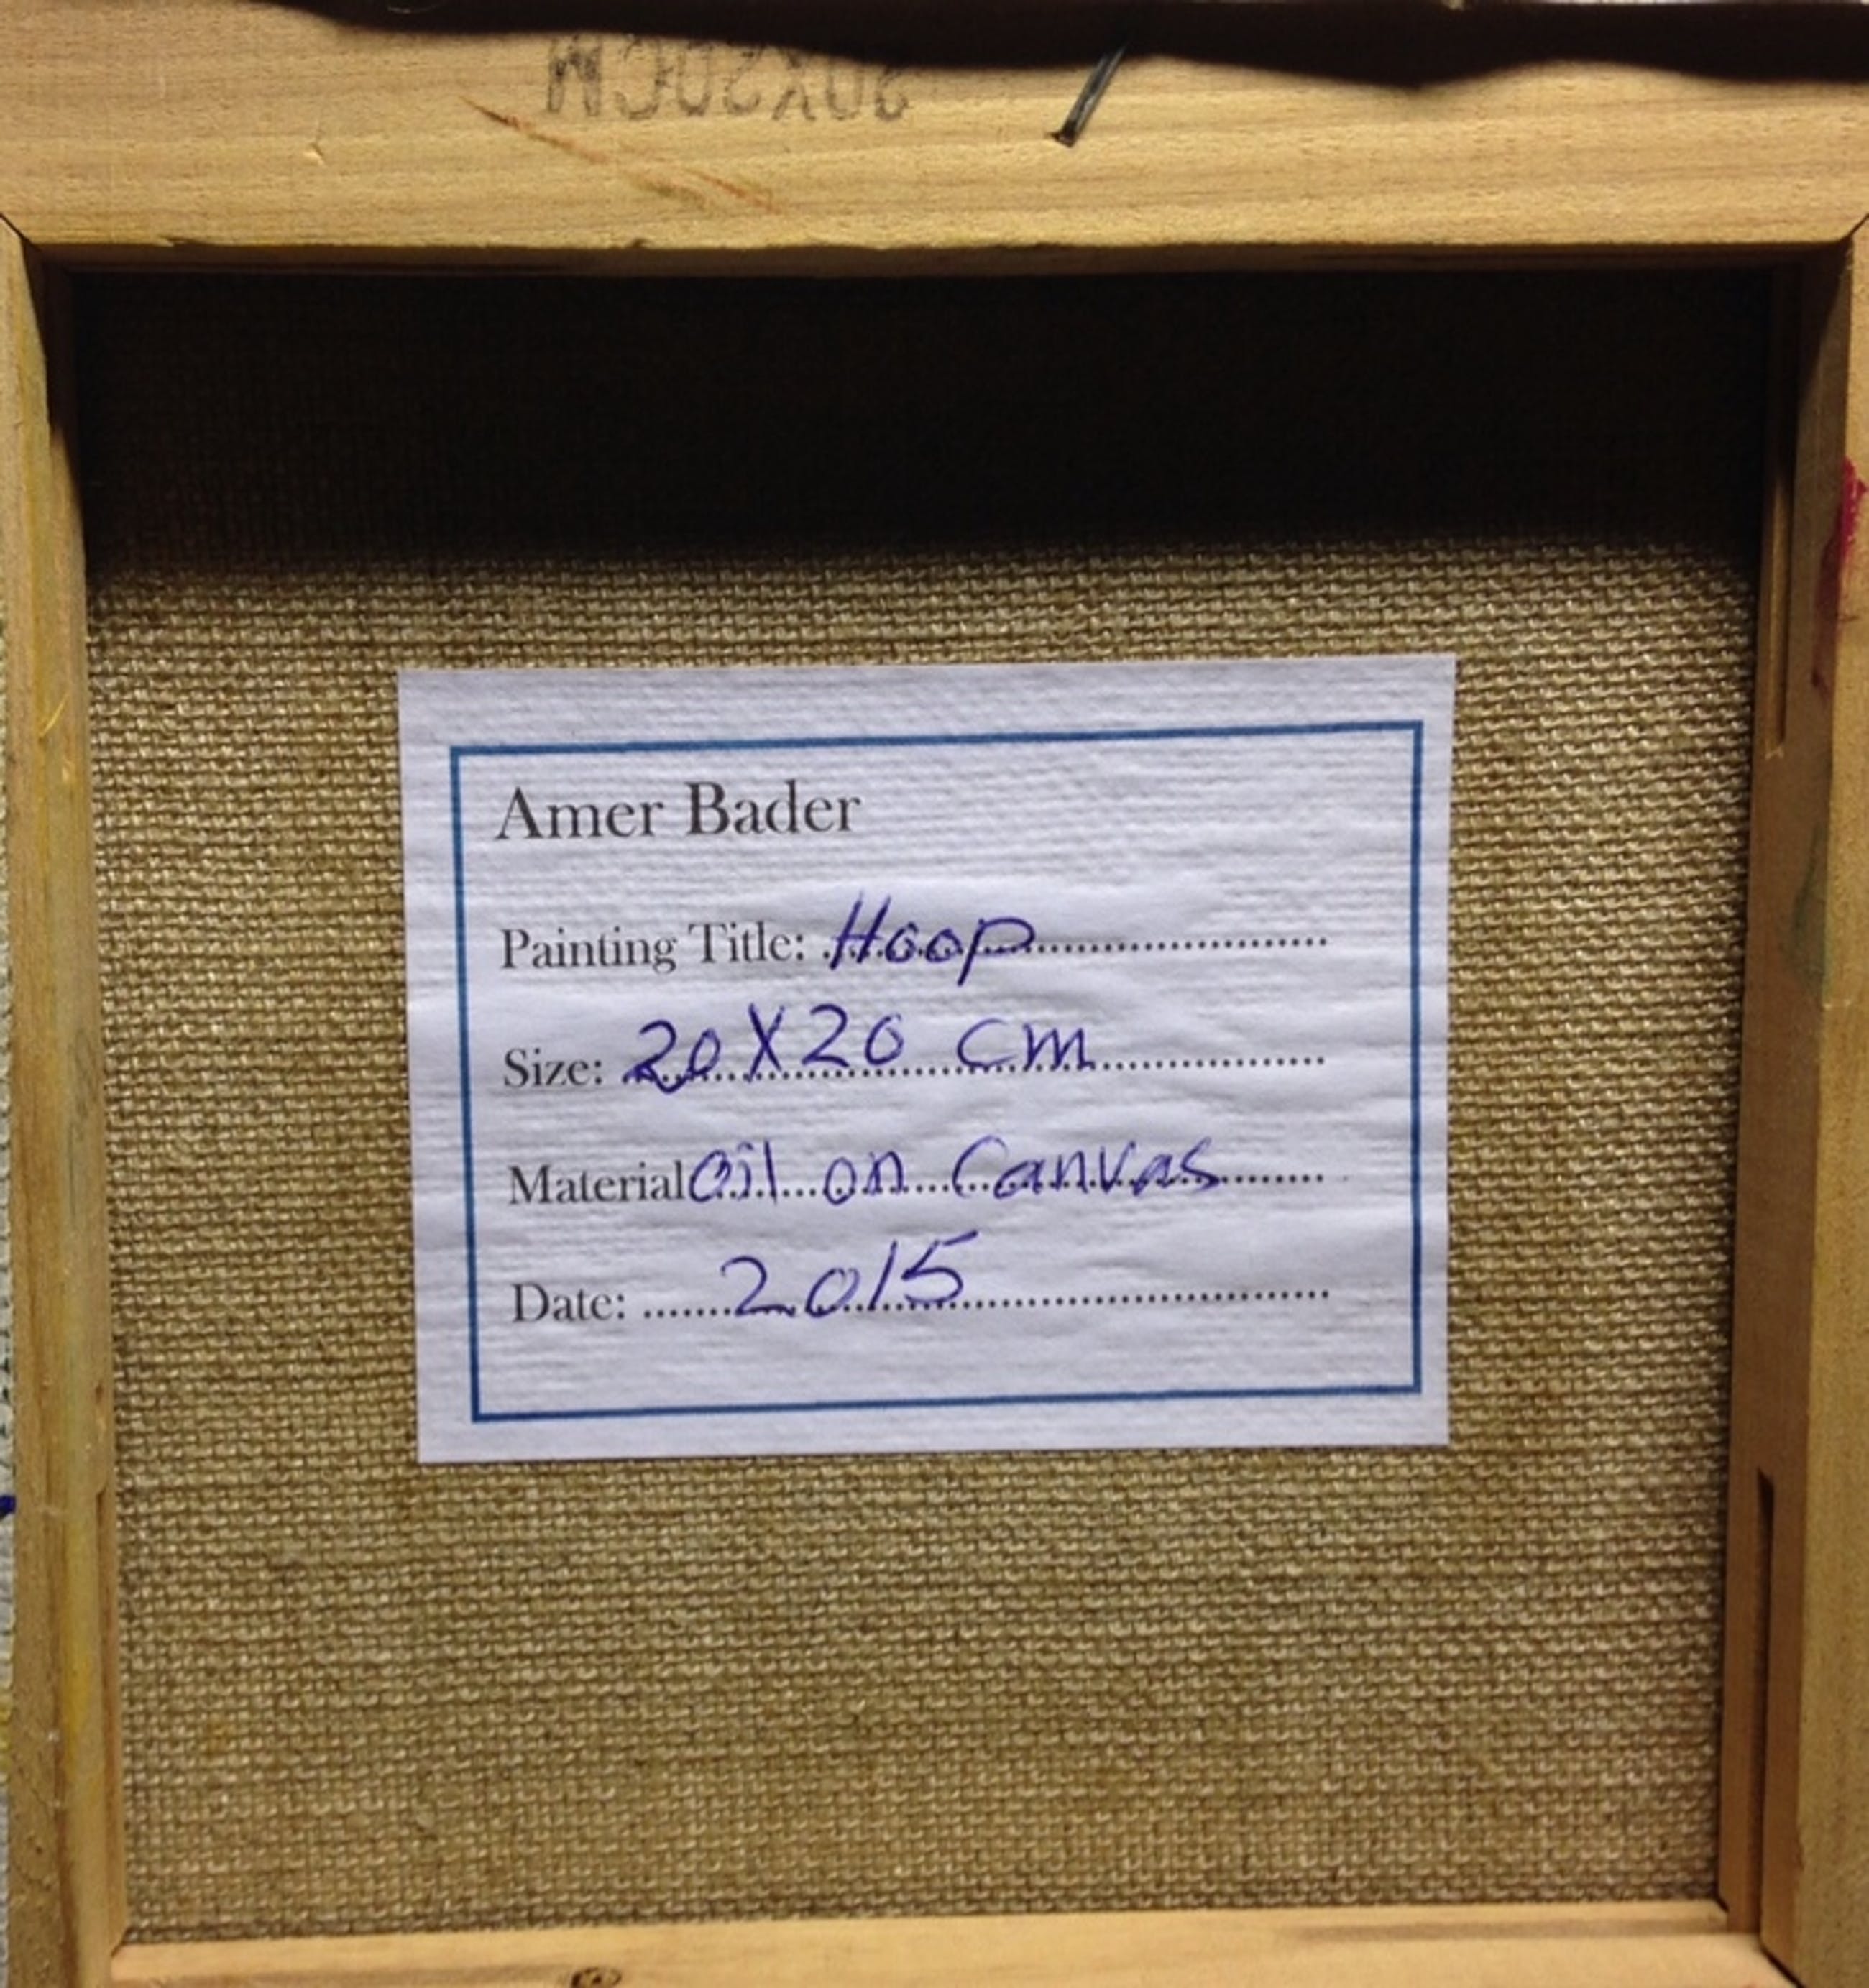 20X20CM
Amer Bader
Painting Title: Hoop
Size: 20X20 cm
Material Oil on Canvas
Date: 2015